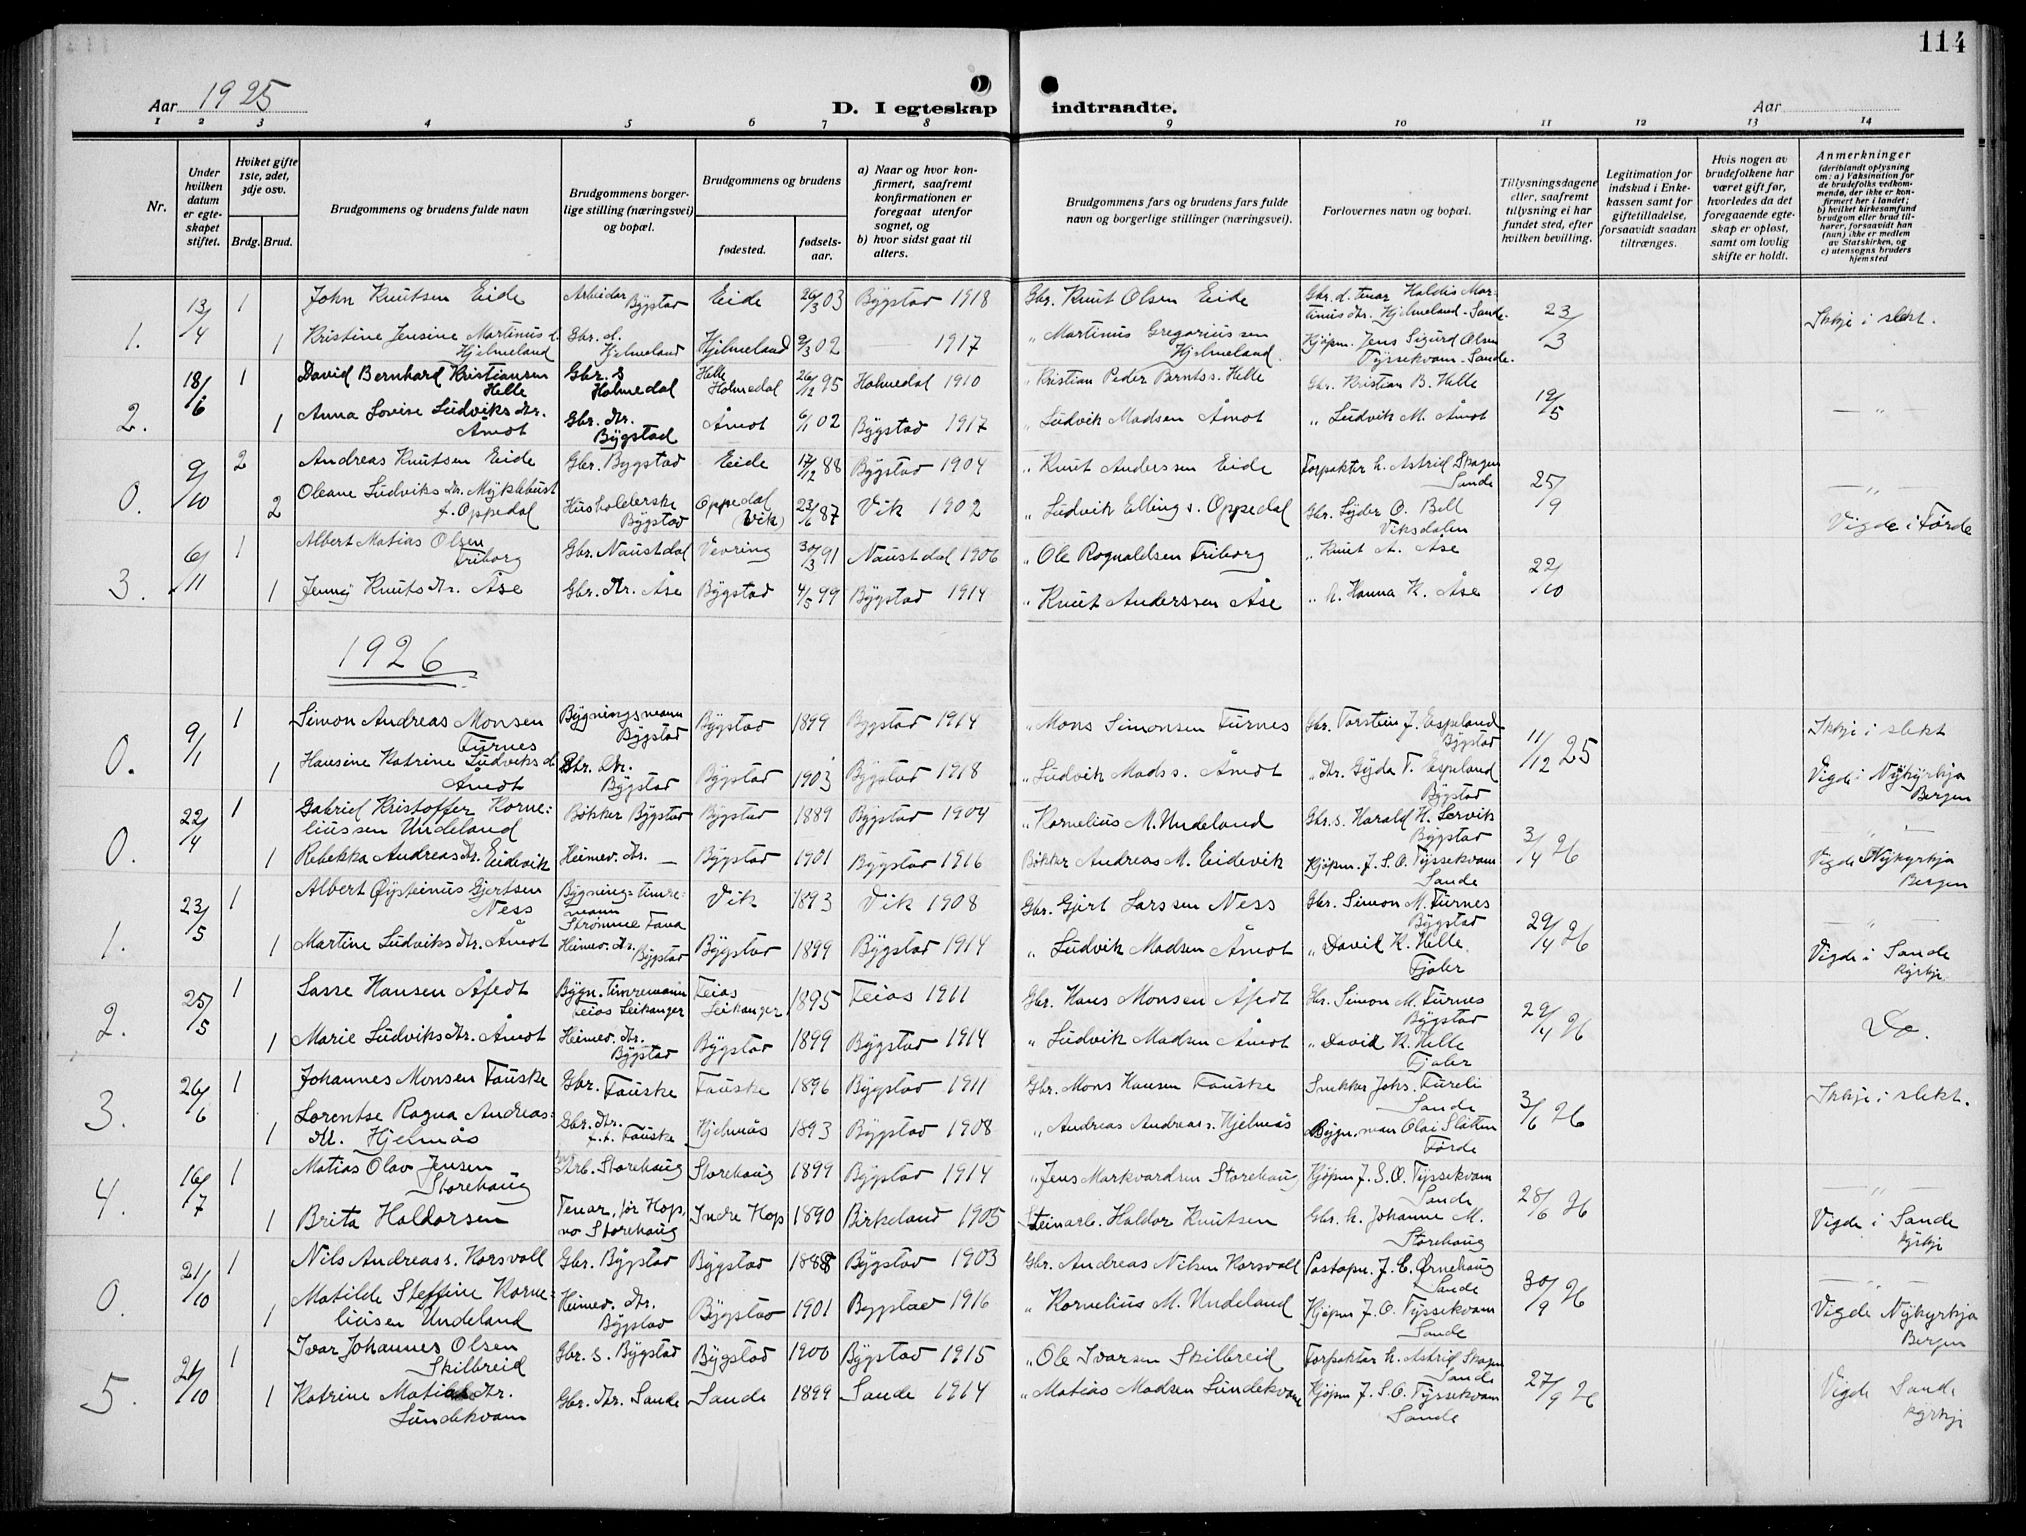 114
Aar 1925
D. I egteskap indtraadte.
Aar
1 2 3 4 5 6 7 8 9 10 11 12 13 14
Nr.
Under hvilken datum er egteskapet stiftet.
Hviket gifte 1ste, 2det, 3dje osv.
Brdg. Brud.
Brudgommens og brudens fulde navn
Brudgommens borgerlige stilling (næringsvei) og bopæl.
Brudgommens og brudens
fødested.
fødselsaar.
a) Naar og hvor konfirmert, saafremt konfirmationen er foregaat utenfor sognet, og
b) hvor sidst gaat til alters.
Brudgommens fars og brudens fars fulde navn og borgerlige stillinger (næringsvei).
Forlovernes navn og bopæl.
Tillysningsdagene eller, saafremt tillysning ei har fundet sted, efter hvilken bevilling.
Legitimation for indskud i Enkekassen samt for giftetilladelse, forsaavidt saadan tiltrænges.
Hvis nogen av brudefolkene har været gift før, hvorledes da det foregaaende egteskap er opløst, samt om lovlig skifte er holdt.
Anmerkninger (deriblandt oplysning om: a) Vaksination for de brudefolks vedkommende, der ikke er konfirmert her i landet; b) hvilket kirkesamfund brudgom eller brud tilhører, forsaavidt han (hun) ikke er medlem av Statskirken, og c) utensogns bruders hjemsted
1. 13/4 1 John Knutsen Eide Arbeider Bygstad Eide 26/3 03 Bygstad 1918 Gbr. Knut Olsen Eide Gbr. d. Tenar Haldis Martinus dtr. Hjelmeland - Sande. 23/3 Ikkje i slekt.
1 Kristine Jensine Martinus d. Hjelmeland Gbr. d. Hjelmeland Hjelmeland 9/3 02 1917 " Martinus Gregoriussen Hjelmeland. Kjøpm. Jens Sigurd Olsen Tyssekvam - Sande.
2. 18/6 1 David Bernhard Kristiansen Helle Gbr. s Holmedal Helle Holmedal 26/12 95 Holmedal 1910 " Kristian Peder Bernts s. Helle Gbr. Kristian B. Helle 19/5 — " —
1 Anna Lovise Ludviks dtr. Åmot Gbr. dtr. Bygstad Åmot 6/1 02 Bygstad 1917 " Ludvik Madsen Åmot " Ludvik M. Åmot
0. 9/10 2 Andreas Knutsen Eide Gbr. Bygstad Eide 17/12 88 Bygstad 1904 " Knut Anderssen Eide Forpakter h. Astrid Skagen Sande 25/9 — " —
2 Oleane Ludviks dtr. Myklebust f. Oppedal Husholderske Bygstad Oppedal (Vik) 23/6 87 Vik 1902 " Ludvik Elling s. Oppedal Gbr. Lyder O. Bell Viksdalen Vigde i Førde
3. 6/11 1 Albert Matias Olsen Friborg Gbr. Naustdal Vevring 30/3 91 Naustdal 1906 " Ole Rognaldsen Friborg " Knut A. Åse 22/10
1 Jenny Knuts dtr. Åse Gbr. dtr. Åse Bygstad 4/5 99 Bygstad 1914 " Knut Anderssen Åse " h. Hanna K. Åse
1926
0. 9/1 1 Simon Andreas Monsen Furnes Bygningsmann Bygstad Bygstad 1899 Bygstad 1914 " Mons Simonsen Furnes Gbr. Torstein J. Espeland Bygstad 11/12 25 Ikkje i slekt
1 Hansine Katrine Ludviks d. Åmot Gbr. dtr. Bygstad Bygstad 1903 Bygstad 1918 " Ludvik Mads s. Åmot " dtr. Gyda T. Espeland Bygstad Vigde i Nykyrkja Bergen
0. 22/4 1 Gabriel Kristoffer Korneliussen Undeland Bøkker Bygstad Bygstad 1889 Bygstad 1904 " Kornelius M. Undeland Gbr. s. Harald H. Lervik Bygstad 3/4 26 — " —
1 Rebekka Andreas dtr. Eidevik Heimev. dtr. — Bygstad 1901 Bygstad 1916 Bøkker Andreas M. Eidevik Kjøpm. J. S. O. Tyssekvam Sande Vigde Nykyrkja Bergen
1. 23/5 1 Albert Øysteinus Gjertsen Ness Bygning-timremann Strømme Fana Vik 1893 Vik 1908 Gbr. Gjert Larssen Ness Gbr. Simon M. Furnes Bygstad 29/4 26 — " —
1 Martine Ludviks dtr. Åmot Heimev. dtr. Bygstad Bygstad 1899 Bygstad 1914 " Ludvik Madsen Åmot " David K. Helle Fjaler Vigde i Sande kyrkje
2. 25/5 1 Lasse Hansen Åfedt Bygn. Timremann Feios Leikanger Feios Leikanger 1895 Feios 1911 Gbr. Hans Monsen Åfedt Gbr. Simon M. Furnes Bygstad 29/4 26 Do.
1 Marie Ludviks dtr. Åmot Heimev. dtr. Bygstad Bygstad 1899 Bygstad 1914 " Ludvik Madsen Åmot " David K. Helle Fjaler
3. 26/6 1 Johannes Monsen Fauske Gbr. Fauske Fauske 1896 Bygstad 1911 Gbr. Mons Hansen Fauske Snekker Johs. Fureli Sande 3/6 26 Ikkje i slekt.
1 Lorentse Ragna Andreasdtr. Hjelmås Gbr. dtr. f.t. Fauske Hjelmås 1893 Bygstad 1908 " Andreas Andreas s. Hjelmås Bygn. man Olai Slåtten Førde
4. 16/7 1 Matias Olav Jensen Storehaug Arb. Storehaug Storehaug 1899 Bygstad 1914 " Jens Markvardsen Storehaug Kjøpm J. S. O. Tyssekvam Sande 28/6 26 — " —
1 Brita Haldorsen Tenar, før Hop, no Storehaug Indre Hop 1890 Birkeland 1905 Steinarb. Haldor Knutsen Gbr. h. Johanne M. Storehaug Vigde i Sande kyrkje
0. 21/10 1 Nils Andreas s. Korsvoll Gbr. Bygstad Bygstad 1888 Bygstad 1903 Gbr. Andreas Nilsen Korsvoll Postopn. J. C. Ørnehaug Sande 30/9 26 — " —
1 Matilde Steffine Korneliusen Undeland Heimev. dtr. Bygstad Bygstad 1901 Bygstad 1916 " Kornelius M. Undeland Kjøpm J. O. Tyssekvam Sande Vigde Nykyrkja Bergen
5. 21/10 1 Ivar Johannes Olsen Skilbreid Gbr. s. Bygstad Bygstad 1900 Bygstad 1915 " Ole Ivarsen Skilbreid Forpaktar h. Astrid Skagen Sande 27/9 26
1 Katrine Matias dtr. Sundekvam Gbr. dtr. Sande Sande 1899 Sande 1914 " Matias Madsen Sundekvam Kjøpm J. S. O. Tyssekvam Sande Vigde Sande kyrkje